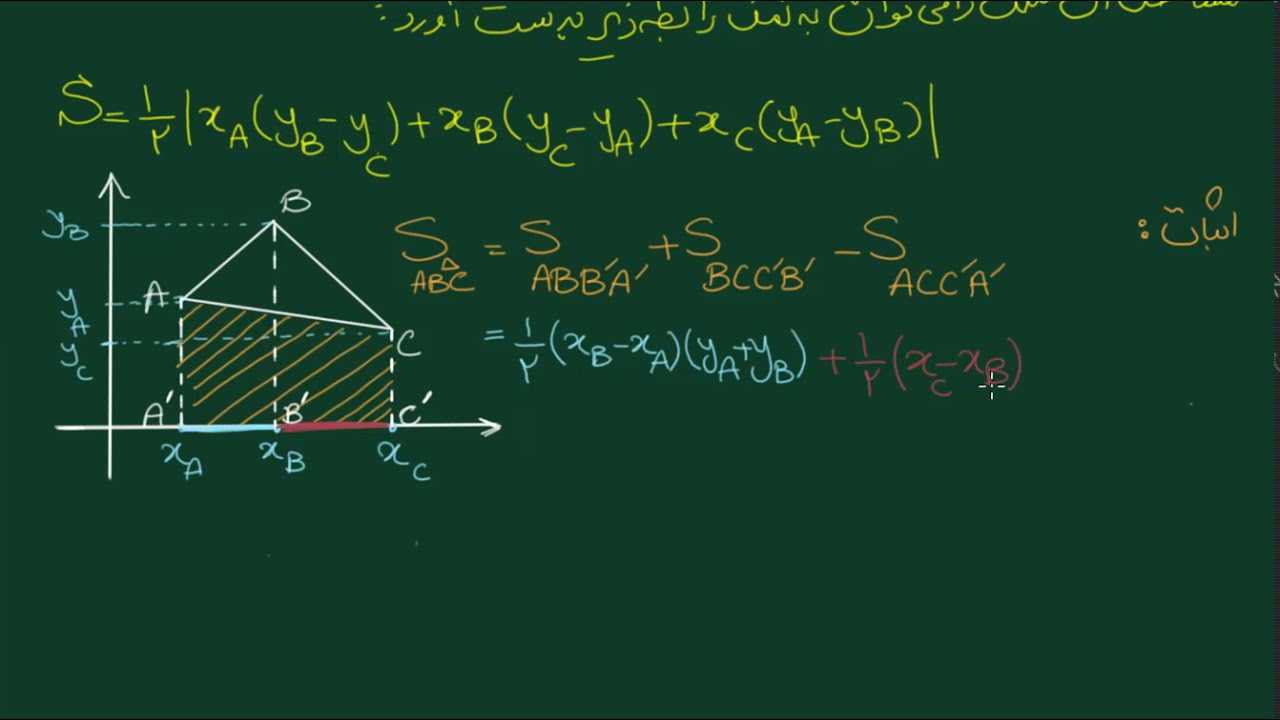 مساحت آن مثلث را می توان به کمک رابطه زیر به دست آورد :
S = ۱/۲ |x_A(y_B − y_C) + x_B(y_C − y_A) + x_C(y_A − y_B)|
اثبات :
S_ABC^Δ = S_ABB′A′ + S_BCC′B′ − S_ACC′A′
= ۱/۲ (x_B − x_A)(y_A + y_B) + ۱/۲ (x_C − x_B)
B
y_B
A
y_A
y_C
C
A′ B′ C′
x_A x_B x_C